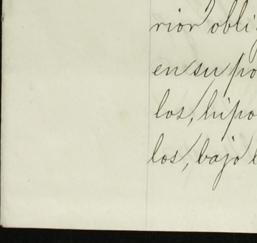 rior obli
en su po
los, hipo
los, bajo l